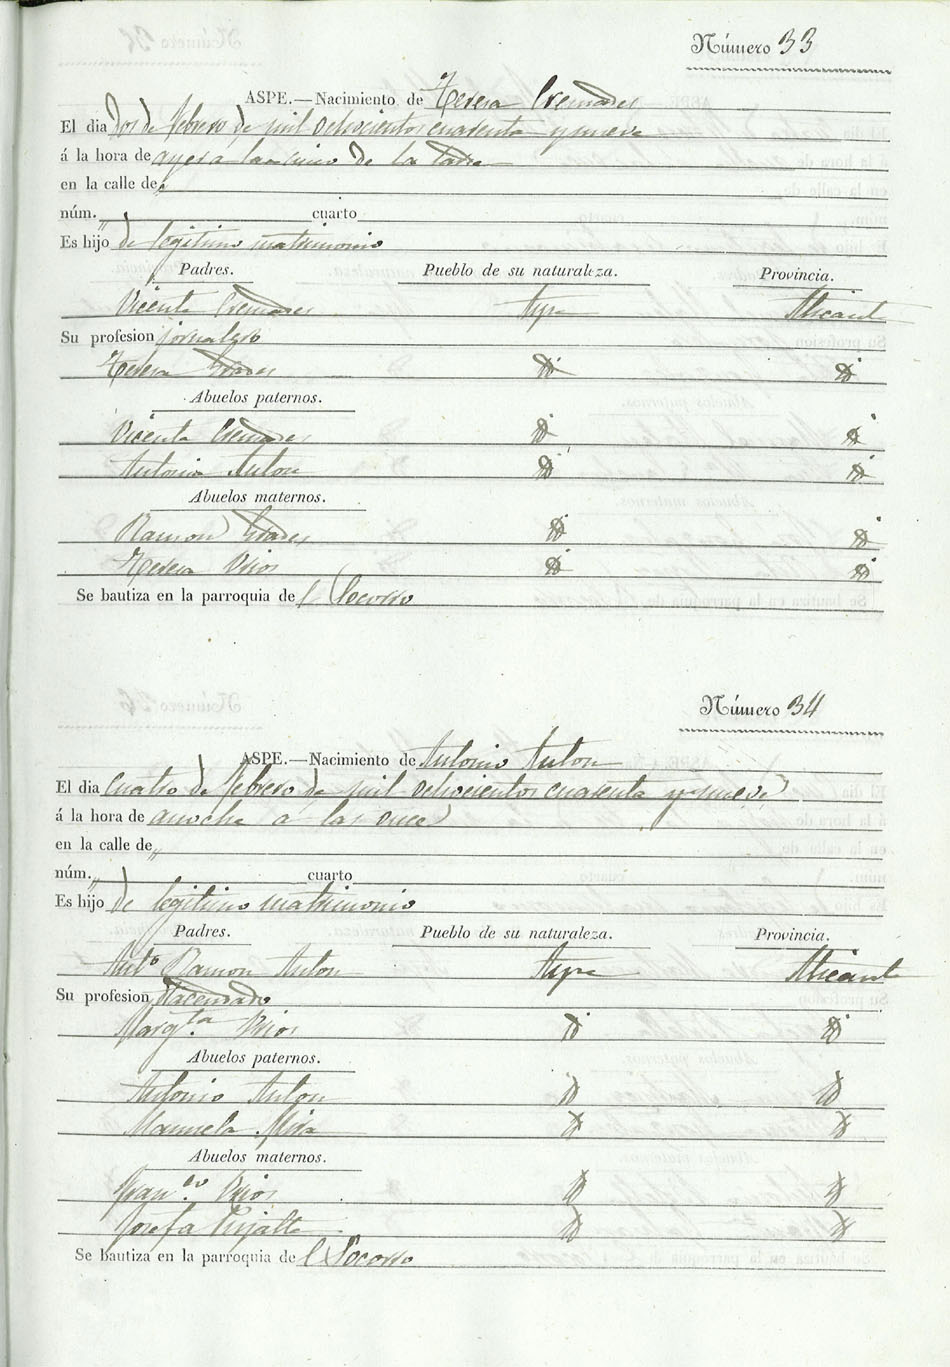 Número 33
ASPE.—Nacimiento de Teresa Cremades
El dia Dos de febrero de mil ochocientos cuarenta y nueve
á la hora de ayer a las cinco de la tarde
en la calle de „
núm. „ cuarto
Es hijo de legitimo matrimonio
Padres. Pueblo de su naturaleza. Provincia.
Vicente Cremades Aspe Alicante
Su profesion jornalero
Teresa id id
Abuelos paternos.
Vicente Cremades id id
Antonia Anton id id
Abuelos maternos.
Ramon id id
Teresa id id
Se bautiza en la parroquia del Socorro
Número 34
ASPE.—Nacimiento de Antonio Anton
El dia cuatro de febrero de mil ochocientos cuarenta y nueve
á la hora de anoche a las once
en la calle de „
núm. „ cuarto
Es hijo de legitimo matrimonio
Padres. Pueblo de su naturaleza. Provincia.
Antº Ramon Anton Aspe Alicante
Su profesion Hacendado
Margta id id
Abuelos paternos.
Antonio Anton id id
Manuela Mira id id
Abuelos maternos.
Franco id id
Josefa id id
Se bautiza en la parroquia del Socorro